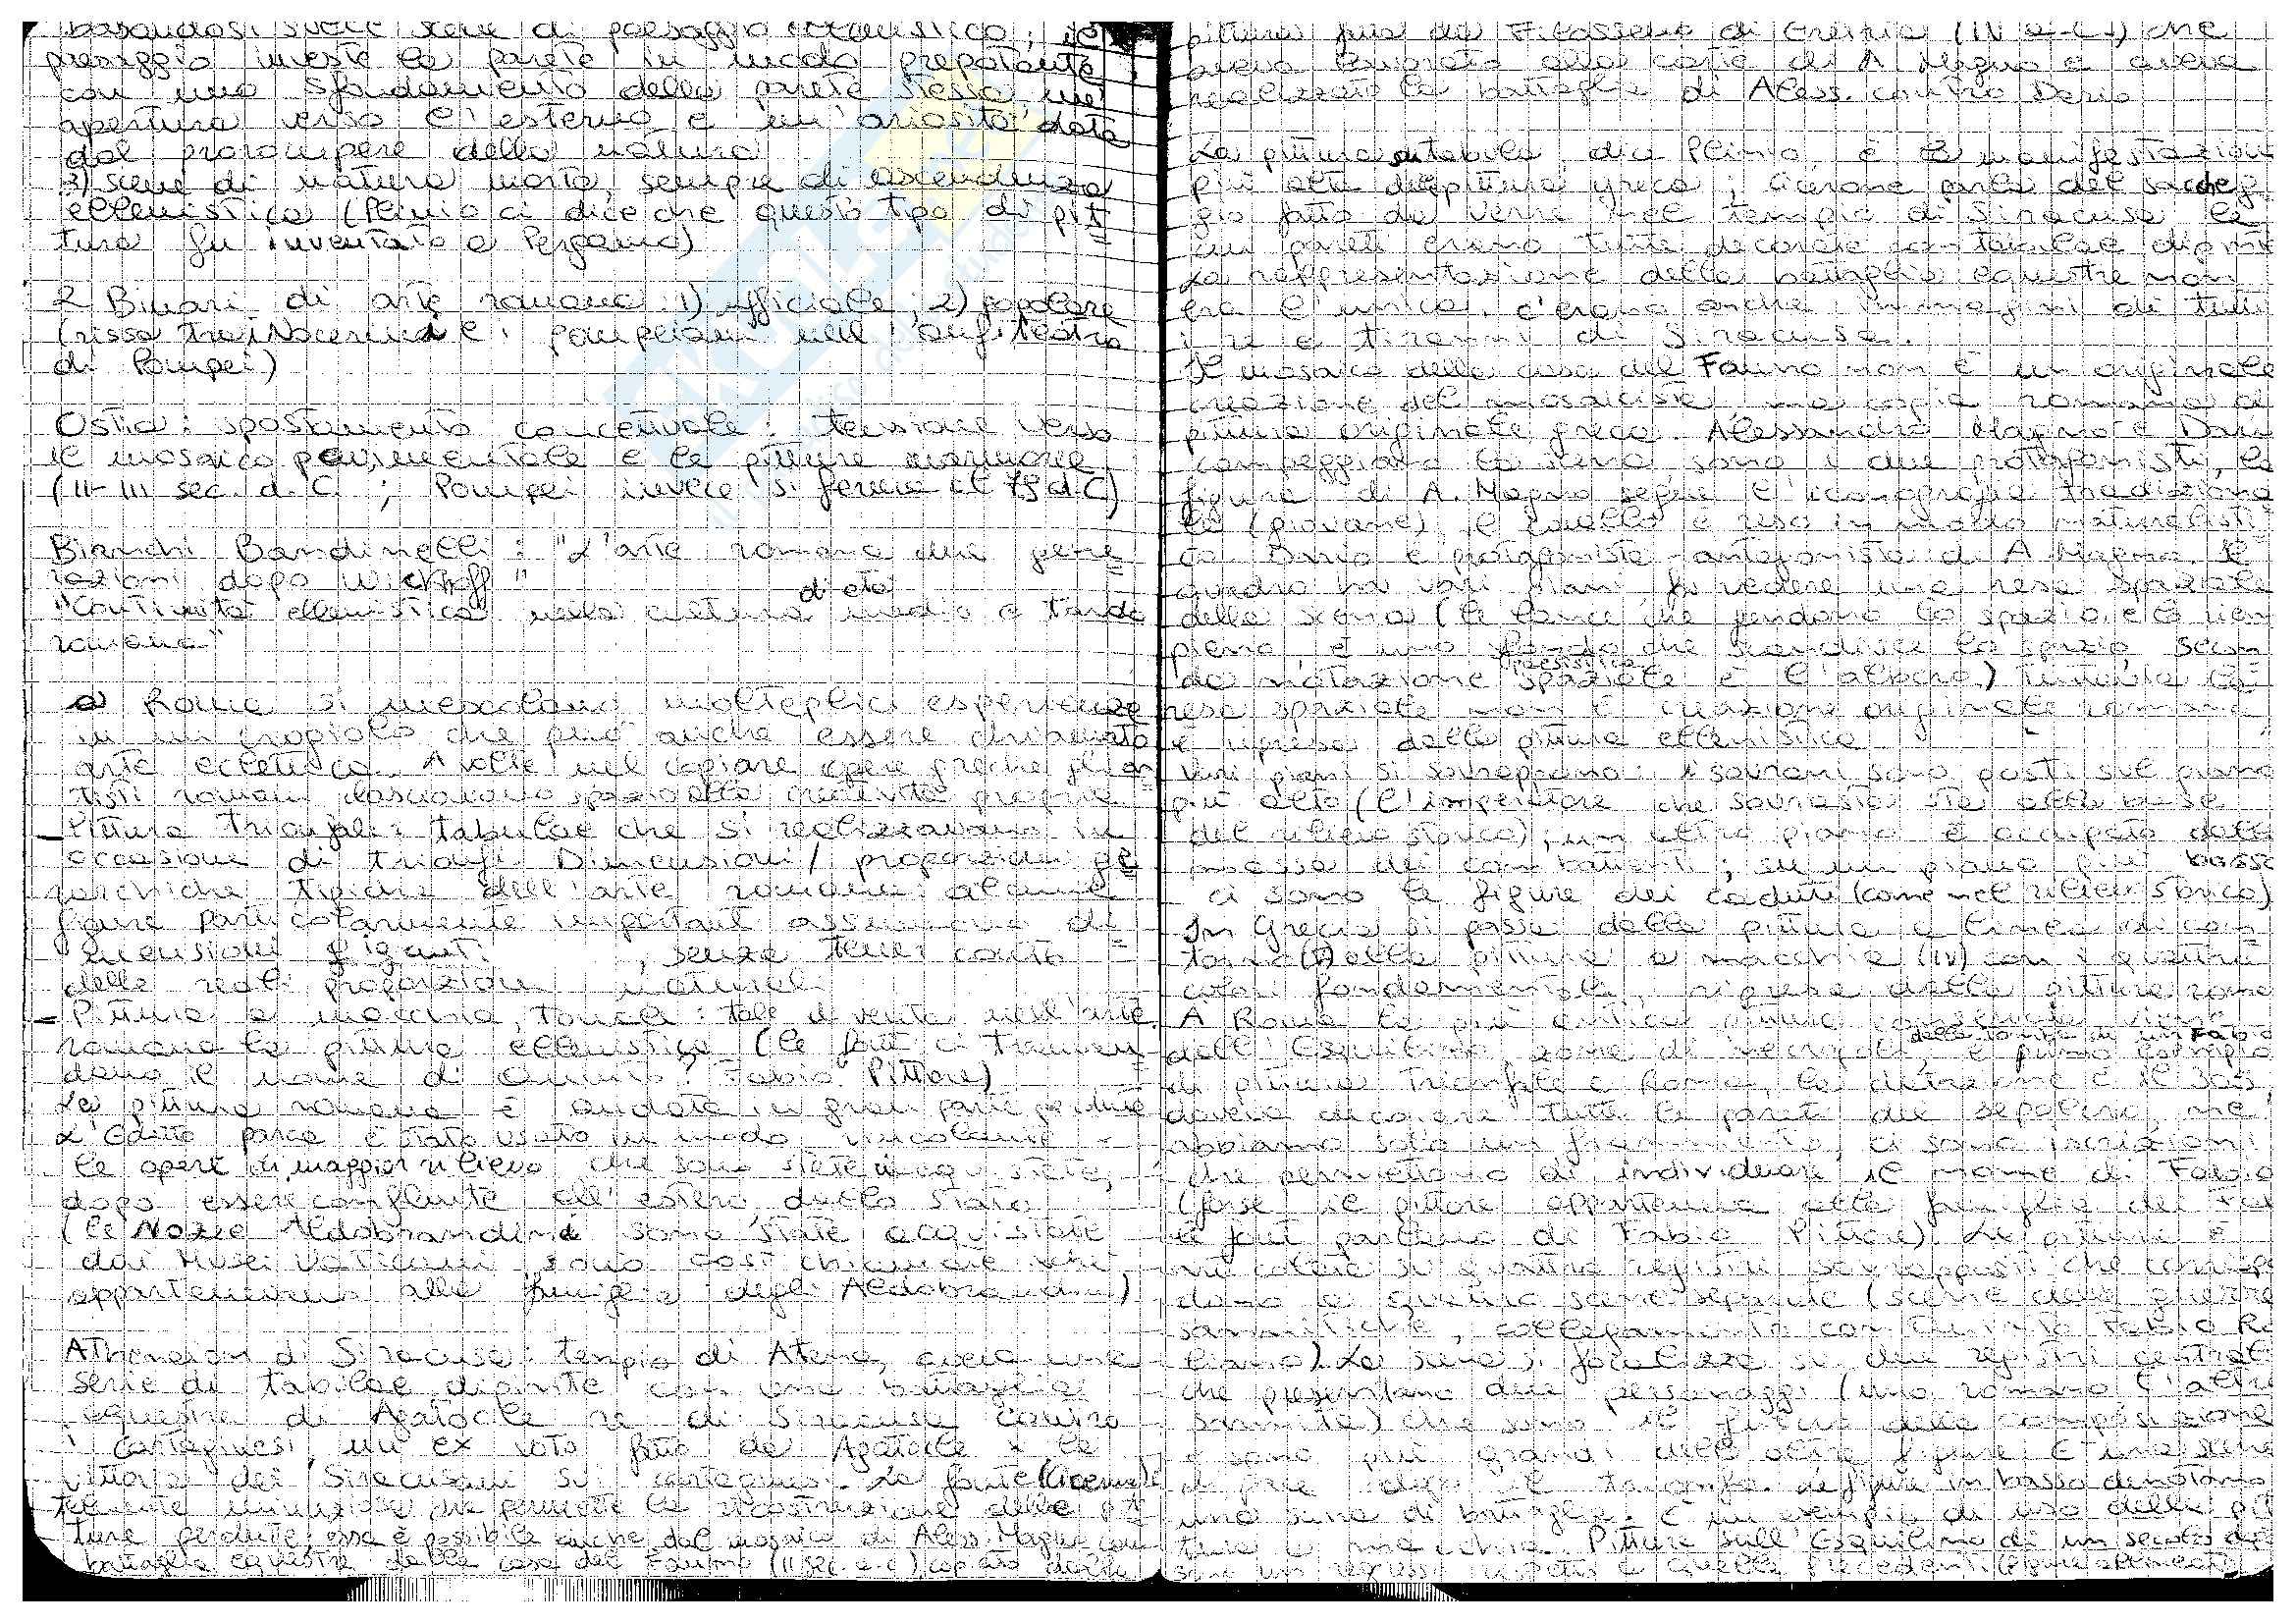 basandosi sulle scene di paesaggio ellenistico; il
paesaggio investe la parete in modo prepotente
con uno sfondamento della parete stessa, un'
apertura verso l'esterno e un'ariosità data
dal prorompere della natura
3) scene di natura morta, sempre di ascendenza
ellenistica (Plinio ci dice che questo tipo di pit
tura fu inventato a Pergamo)
2 Binari di arte romana: 1) ufficiale; 2) popolare
(rissa tra i Nocerini e i pompeiani nell'anfiteatro
di Pompei)
Ostia: spostamento concettuale: tensione verso
il mosaico pavimentale e le pitture marmoree
(II-III sec. d.C.; Pompei invece si ferma al 79 d.C)
Bianchi Bandinelli: "L'arte romana due gene
razioni dopo Wickhoff"
"Continuità ellenistica nella cultura di età media e tardo
romana"
a Roma si mescolano molteplici esperienze
in un crogiolo che può anche essere chiamato
arte eclettica. A volte nel copiare opere greche gli ar
tisti romani lasciavano spazio alla creatività propria
- Pittura trionfale: tabulae che si realizzavano in
occasione di trionfi. Dimensioni / proporzioni ge
rarchiche tipiche dell'arte romana: alcune
figure particolarmente importanti assumono di
mensioni giganti, senza tener conto
delle reali proporzioni naturali
- Pittura a macchia, tonale: tale diventa nell'arte
romana la pittura ellenistica (le fonti ci traman
dano il nome di Quinto Fabio Pittore)
La pittura romana è andata in gran parte perduta
L'Editto pacca è stato usato in modo vincolante x
le opere di maggior rilievo che sono state acquistate,
dopo essere confluite all'estero dallo stato
(le Nozze Aldobrandine sono state acquistate
dai Musei Vaticani, sono così chiamate xché
appartenevano alla famiglia degli Aldobrandini)
Athenaion di Siracusa: tempio di Atena, aveva una
serie di tabulae dipinte con una battaglia
equestre di Agatocle re di Siracusa contro
i Cartaginesi, un ex voto fatto da Agatocle x la
vittoria dei Siracusani sui cartaginesi. La fonte (Cicerone) è
talmente minuziosa che permette la ricostruzione delle pit
ture perdute; essa è possibile anche dal mosaico di Aless. Magno con
battaglia equestre della casa del Fauno (II sec. a.C) copiato dalla
pittura fatta da Filosseno di Eretria (IV a.C.) che
aveva lavorato alla corte di A. Magno e aveva
realizzato la battaglia di Aless. contro Dario
La pittura su tabula dice Plinio, è la manifestazion
più alta della pittura greca; Cicerone parla del saccheg
gio fatto da Verre nel tempio di Siracusa le
cui pareti erano tutte decorate con tabulae dipinte
La rappresentazione della battaglia equestre non
era l'unica, c'erano anche immagini di tutti
i re e tiranni di Siracusa.
Il mosaico della casa del Fauno non è un originale
creazione del mosaicista, ma copia romana di
pittura originale greca. Alessandro Magno e Dario
campeggiano la scena, sono i due protagonisti, la
figura di A. Magno segue l'iconografia tradiziona
le (giovane), il cavallo è reso in modo naturalisti
co. Dario è protagonista-antagonista di A. Magno. Il
quadro ha vari piani, fa vedere una resa spaziale
della scena (le lance che fendono lo spazio, e lo riem
piono, e uno sfondo che scandisce lo spazio. Secon
do notazione paesistica spaziale è l'albero) Tuttavia la
resa spaziale non è creazione originale romana
è ripresa dalla pittura ellenistica
Vari piani si sovrappongono: i sovrani sono posti sul piano
più alto (l'imperatore che sovrasta sta alla base
del rilievo storico); un altro piano è occupato dalla
massa dei combattenti; su un piano più basso
ci sono le figure dei caduti (come nel rilievo storico)
In Grecia si passa dalla pittura a linea di con
torno (V) alla pittura a macchia (IV) con i quattro
colori fondamentali, ripresa dalla pittura roma
A Roma la più antica pittura conservata viene
dall'Esquilino, zona di necropoli, dalla tomba di un Fabio è primo esempio
di pittura trionfale a Roma, la datazione è il 300
doveva decorare tutte le pareti del sepolcro, ne
abbiamo solo un frammento, ci sono iscrizioni
che permettono di individuare il nome di Fabio
(forse il pittore apparteneva alla famiglia dei Fabi
le fonti parlano di Fabio Pittore). La pittura è
articolata su quattro registri sovrapposti che corrispon
dono a quattro scene separate (scene delle guerre
sannitiche, collegamento con Quinto Fabio Ru
lliano). La scena si focalizza su due registri centrali
che presentano due personaggi (uno romano l'altro
sannita) che sono il fulcro della composizione
e sono più grandi delle altre figure. È una scena
di pace dopo il trionfo. Le figure in basso denotano
una scena di battaglia. È un esempio di uso della pit
tura a macchia. Pitture sull'Esquilino di un secolo dopo
sono un regresso rispetto a quelle precedenti (figure allineate)